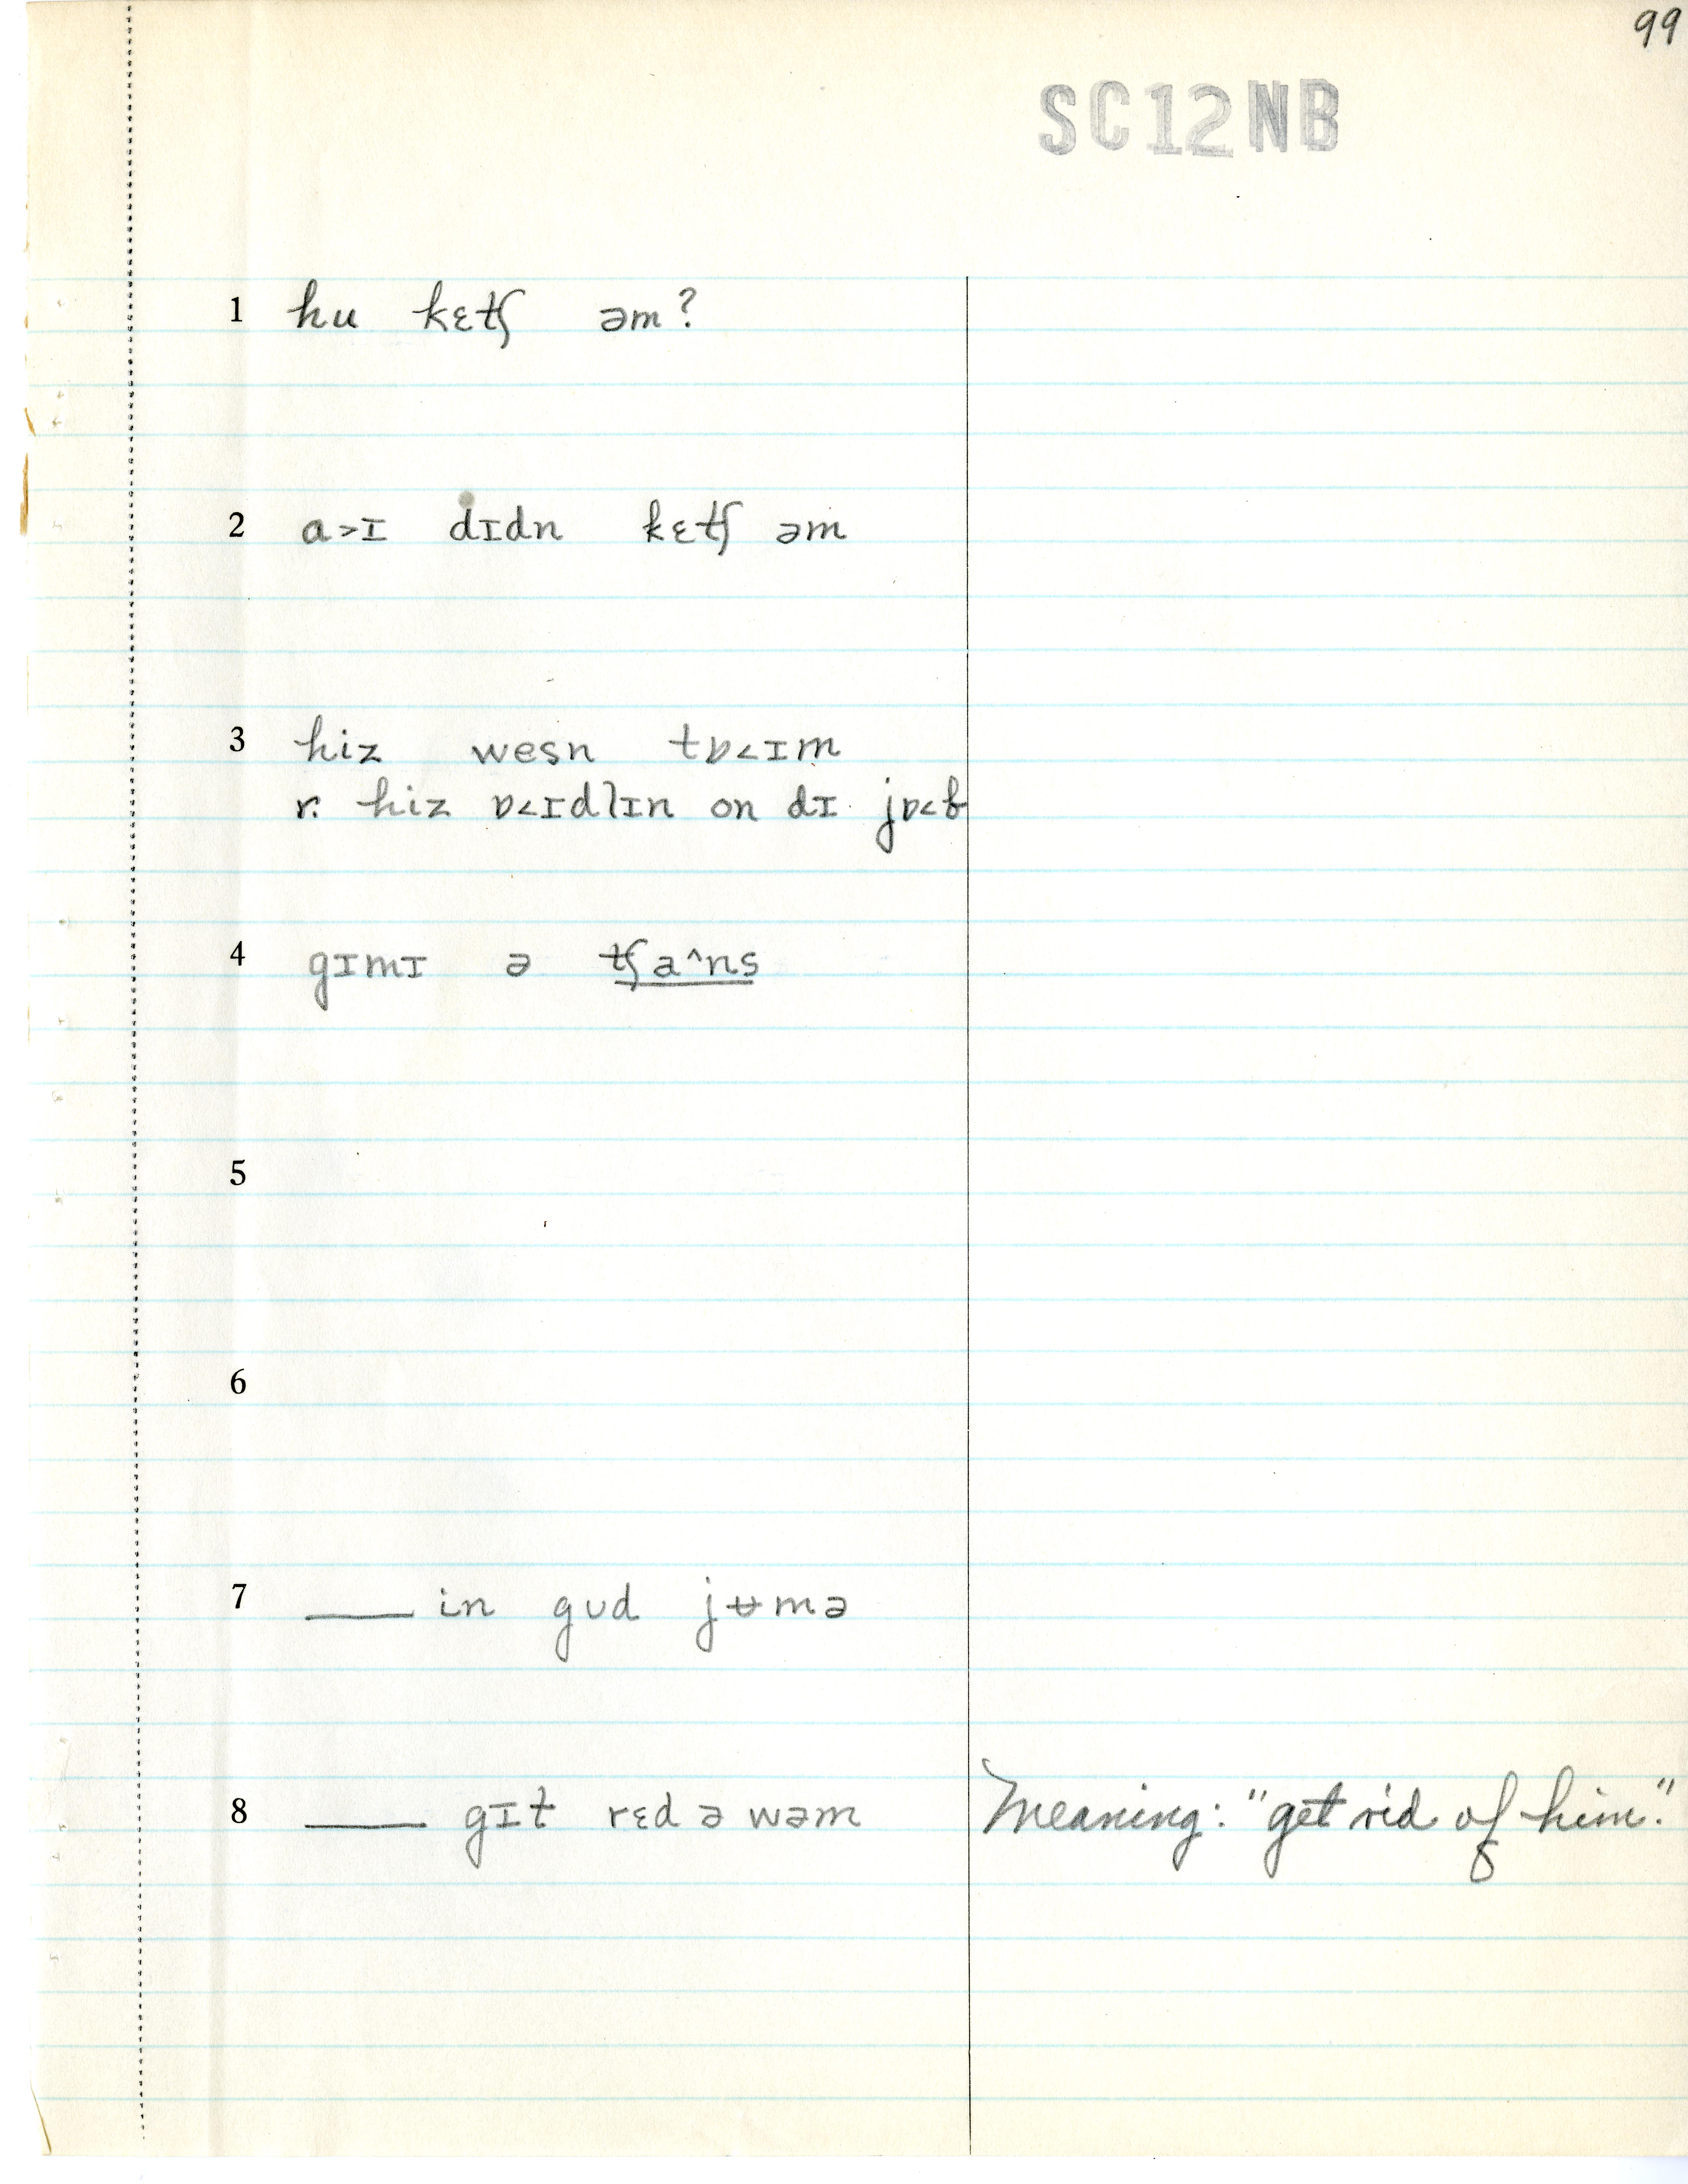 99
SC12NB
1 hu kɛtʃ əm?
2 a>ɪ dɪdn kɛtʃ əm
3 hiz wesn tɒ<ɪm
r. hiz ɒ<ɪdlɪn on dɪ jɒ<b
4 gɪmɪ ə tʃa^ns
5
6
7 ___ in gʊd jʉmə
8 ___ gɪt rɛd ə wəm Meaning: "get rid of him."